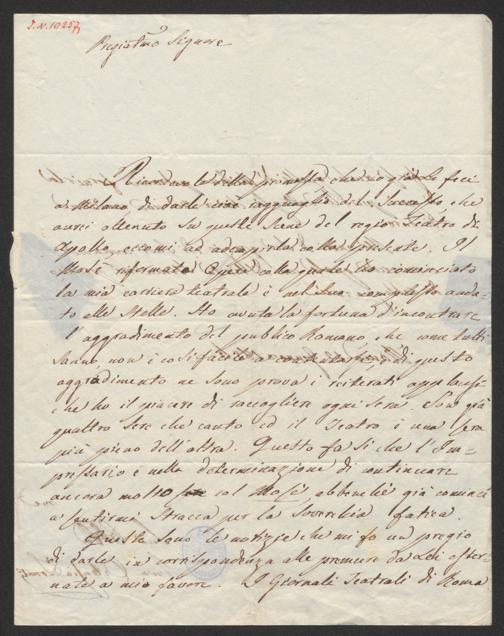 I.N. 10257
Pregiatmo Signore
Ricordevole della promessa che io già Le feci
a Milano di darle ragguaglio del Successo che
avrei ottenuto su queste Scene del regio Teatro di
Apollo, eccomi ad adempirla colla presente. Il
Mosè riformato Opera colla quale ho cominciato
la mia carriera teatrale è nel suo complesso anda-
to alle Stelle. Ho avuta la fortuna d'incontrare
l'aggradimento del pubblico Romano, che come tutti
Sanno, non è così facile a contentarsi, di questo
aggradimento ne Sono prova i reiterati applausi
che ho il piacere di raccogliere ogni sera. Son già
quattro Sere che canto ed il Teatro è una sera
più pieno dell'altra. Questo fa sì che l'Im-
pressario è nella determinazione di continuare
ancora molto col Mosè, abbenchè già cominci
a sentirmi Stracca per la Soverchia fatica.
Queste Sono le notizie che mi fo un pregio
di darle in corrispondenza alle premure da Lei ester-
nate a mio favore. I Giornali Teatrali di Roma